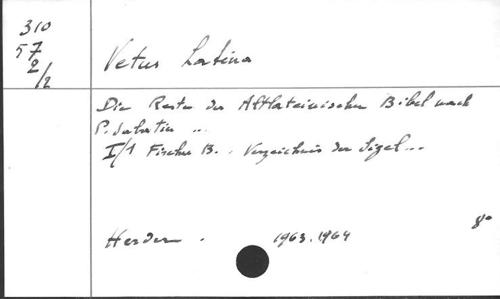 310
57
2/2
Vetus Latina
Die Reste der Altlateinischen Bibel nach
P. Sabatier ..
I/1 Fischer B. . Verzeichnis der Sigel...
Herder . 1963.1964 8°